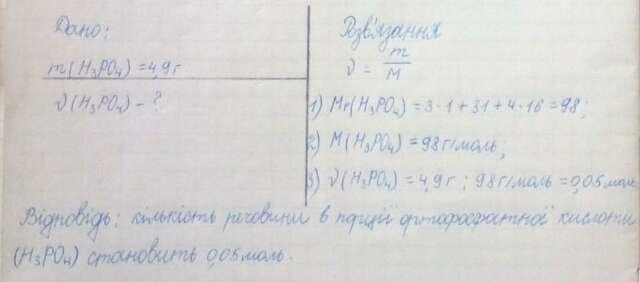 Дано:
m(H₃PO₄) = 4,9 г
ν(H₃PO₄) - ?
Розв'язання
ν = m/M
1) Mr(H₃PO₄) = 3·1+31+4·16 = 98;
2) M(H₃PO₄) = 98 г/моль;
3) ν(H₃PO₄) = 4,9 г : 98 г/моль = 0,05 моль
Відповідь: кількість речовини в порції ортофосфатної кислоти
(H₃PO₄) становить 0,05 моль.